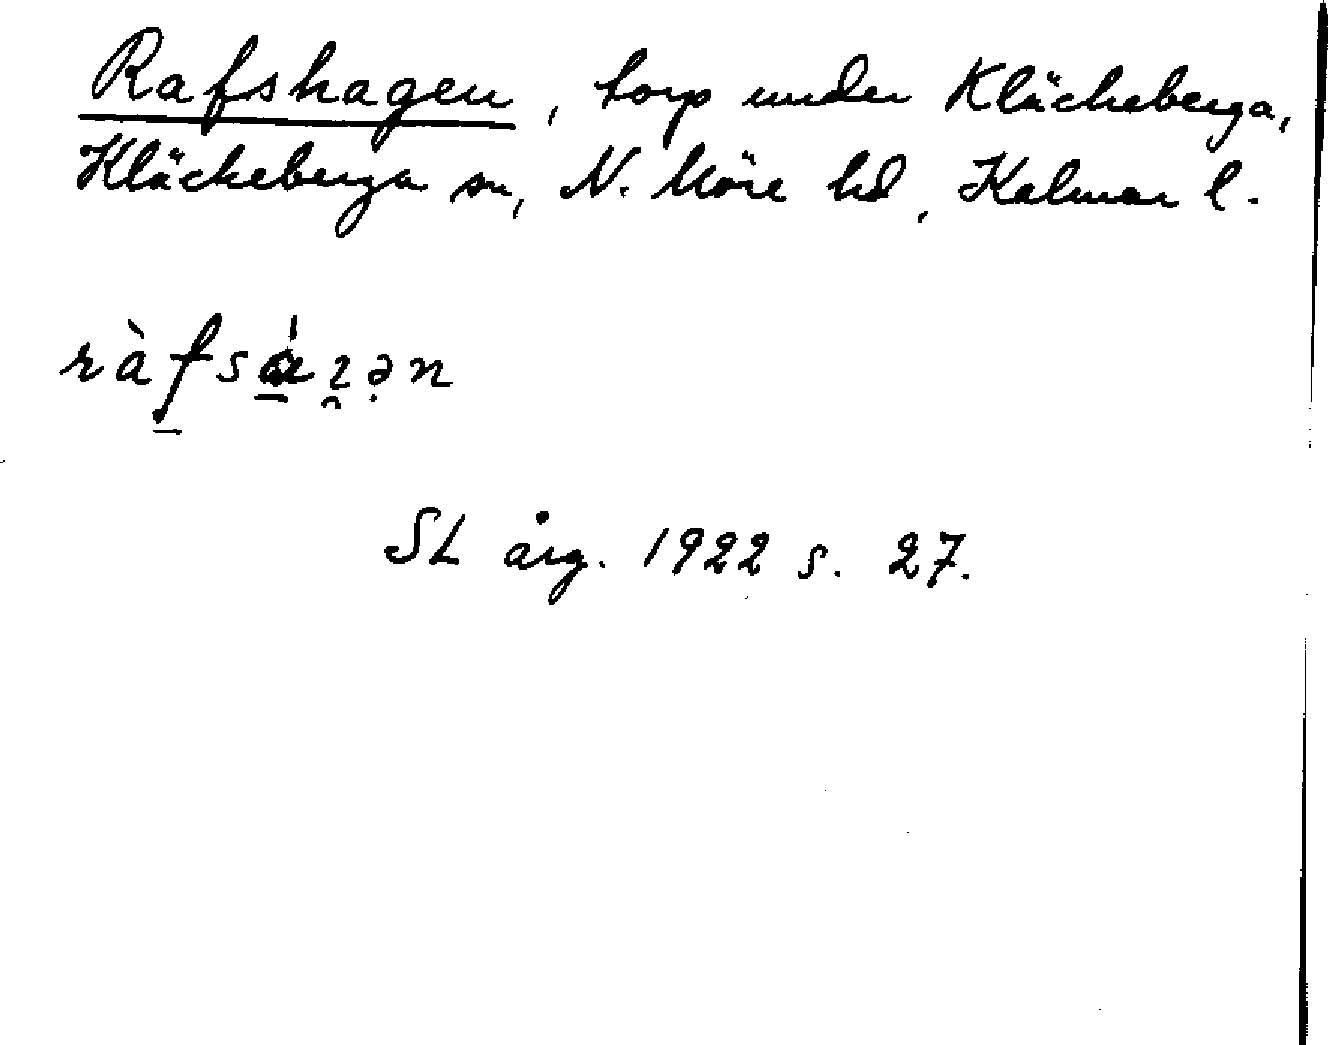 Rafshagen, torp under Kläckeberga,
Kläckeberga sn, N. Möre hd, Kalmar l.
SL årg. 1922 s. 27.